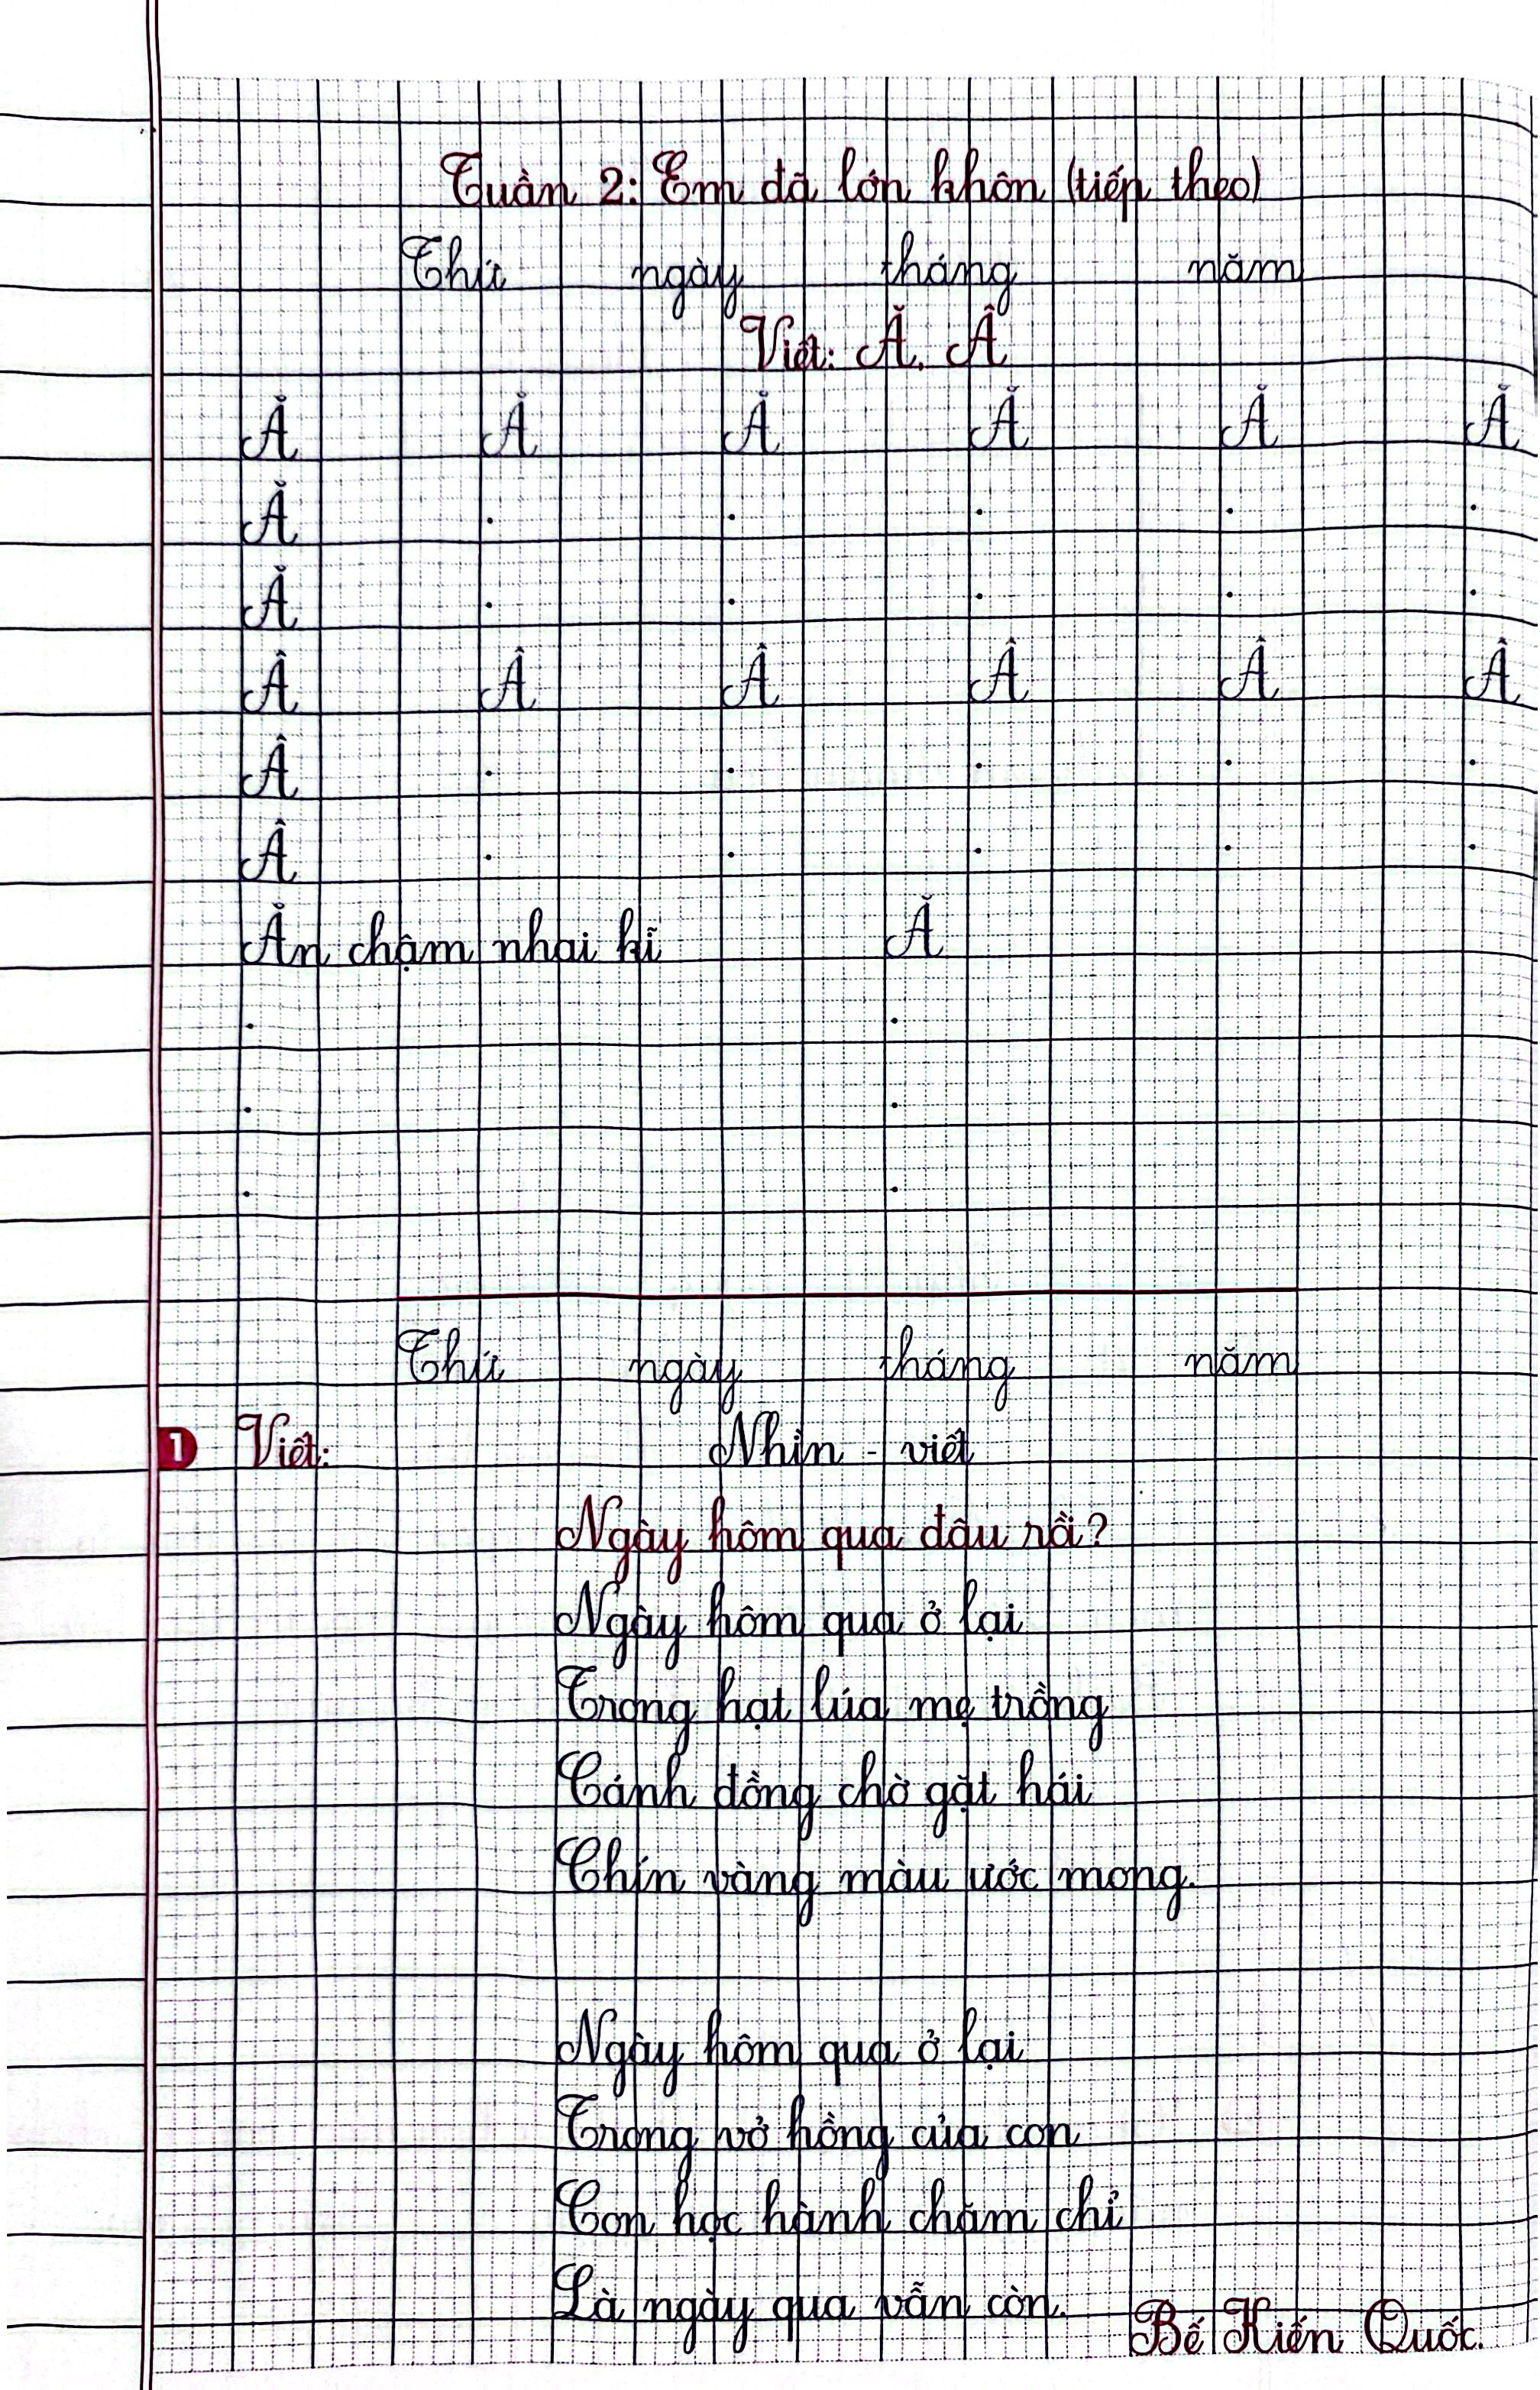 Tuần 2: Em đã lớn khôn (tiếp theo)
Thứ ngày tháng năm
Viết: Ă, Â
Ă Ă Ă Ă Ă Ă
Ă . . . . .
Ă . . . . .
Â Â Â Â Â Â
Â . . . . .
Â . . . . .
Ăn chậm nhai kĩ Ă
. .
. .
. .
Thứ ngày tháng năm
1 Viết: Nhìn - viết
Ngày hôm qua đâu rồi?
Ngày hôm qua ở lại
Trong hạt lúa mẹ trồng
Cánh đồng chờ gặt hái
Chín vàng màu ước mong.
Ngày hôm qua ở lại
Trong vở hồng của con
Con học hành chăm chỉ
Là ngày qua vẫn còn.
Bế Kiến Quốc.